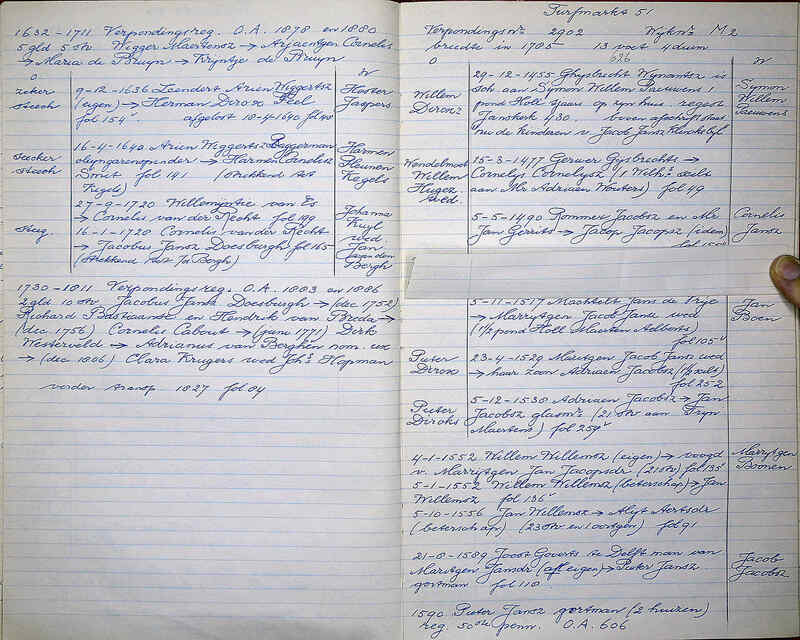 1632-1711 Verpondingsreg. O.A. 1878 en 1880
5 gld 5 str. Wigger Maertensz → Arjaentgen Cornelis
→ Maria de Bruyn → Kryntje de Bruyn
O
W
zeker
steech
9-12-1636 Leendert Arien Wiggertsz
(eigen) → Herman Dircx Peel
fol 154v afgelost 10-4-1640 fol 40
Coster
Jaspers
seecker
steech
16-4-1640 Arien Wiggertsz Baggerman
olijngarenspinder → Harmen Cornelisz
Smet fol 191 (strekkend tot
Kegels)
Harmen
Teunen
Kegels
steeg
27-9-1720 Willemijntie van Es
→ Cornelis van der Recht fol 199
16-1-1720 Cornelis van der Recht
→ Jacobus Jansz Doesburgh fol 165
(strekkend tot v/d Bergh)
Johanna
Kuyl
wed
Jan
van den
Bergh
1730-1811 Verpondingsreg. O.A. 1883 en 1886
2 gld 10 str. Jacobus Jansz Doesburgh → (dec 1752)
Richard Bastiaansz en Hendrik van Breda →
(dec 1756) Cornelis Cabout → (janr 1771) Dirk
Westerveld → Adrianus van Berghen nom. ux
→ (dec 1806) Clara Krugers wed Johs Hopman
verder transp 1827 fol 84
Turfmarkt 51
Verpondingsnr 2902 Wyknr M 2
breedte in 1785 13 voet 4 duim
626
O
W
Willem
Dircxz
29-12-1455 Ghysbrecht Wynantsz is
sch. aan Symon Willem Pieuwens 1
pond Holl tjaers op zyn huis. regest
Janskerk 430.
nu de kinderen v. Jacob Jansz
Symon
Willem
Pieuwensz
Wendelmoet
Willem
Huges
wed.
15-3-1477 Gerver Gysbrechts →
Cornelys Cornelysz (1 Wilhs schilt
aan Mr Adriaen Wouters) fol 49
5-5-1490 Pommer Jacobsz en Mr
Jan Gerrits → Jacop Jacopsz (idem)
Cornelis
Jansz
5-11-1517 Machtelt Jans de Vrije
→ Marrytgen Jacob Jans wed
(1½ pond Holl Maerten Adberts)
fol 105v
Jan
Boen
Pieter
Dircx
23-4-1529 Mertgen Jacob Jans wed
→ haer zoon Adriaen Jacobsz (1½ schilt)
fol 252
Pieter
Dircks
5-12-1530 Adriaen Jacobsz → Jan
Jacobsz glasmr (21 str aan Tryn
Maertens) fol 259v
4-1-1552 Willem Willemsz (eigen) → voogd
v. Marrytgen Jan Jacopsdr (21 str) fol 135v
5-1-1552 Willem Willemsz (beterschap) → Jan
Willemsz fol 136v
5-10-1556 Jan Willemsz → Alyt Aertsdr
(beterschap) (23 str en 1 oortgen) fol 91
Marrytgen
Boonen
21-8-1589 Joost Goverts te Delft man van
Maritgen Jansdr (afl eigen) → Pieter Jansz
gortman fol 118
Jacob
Jacobsz
1590 Pieter Jansz gortman (2 huizen)
reg. 50ste penn. O.A. 606